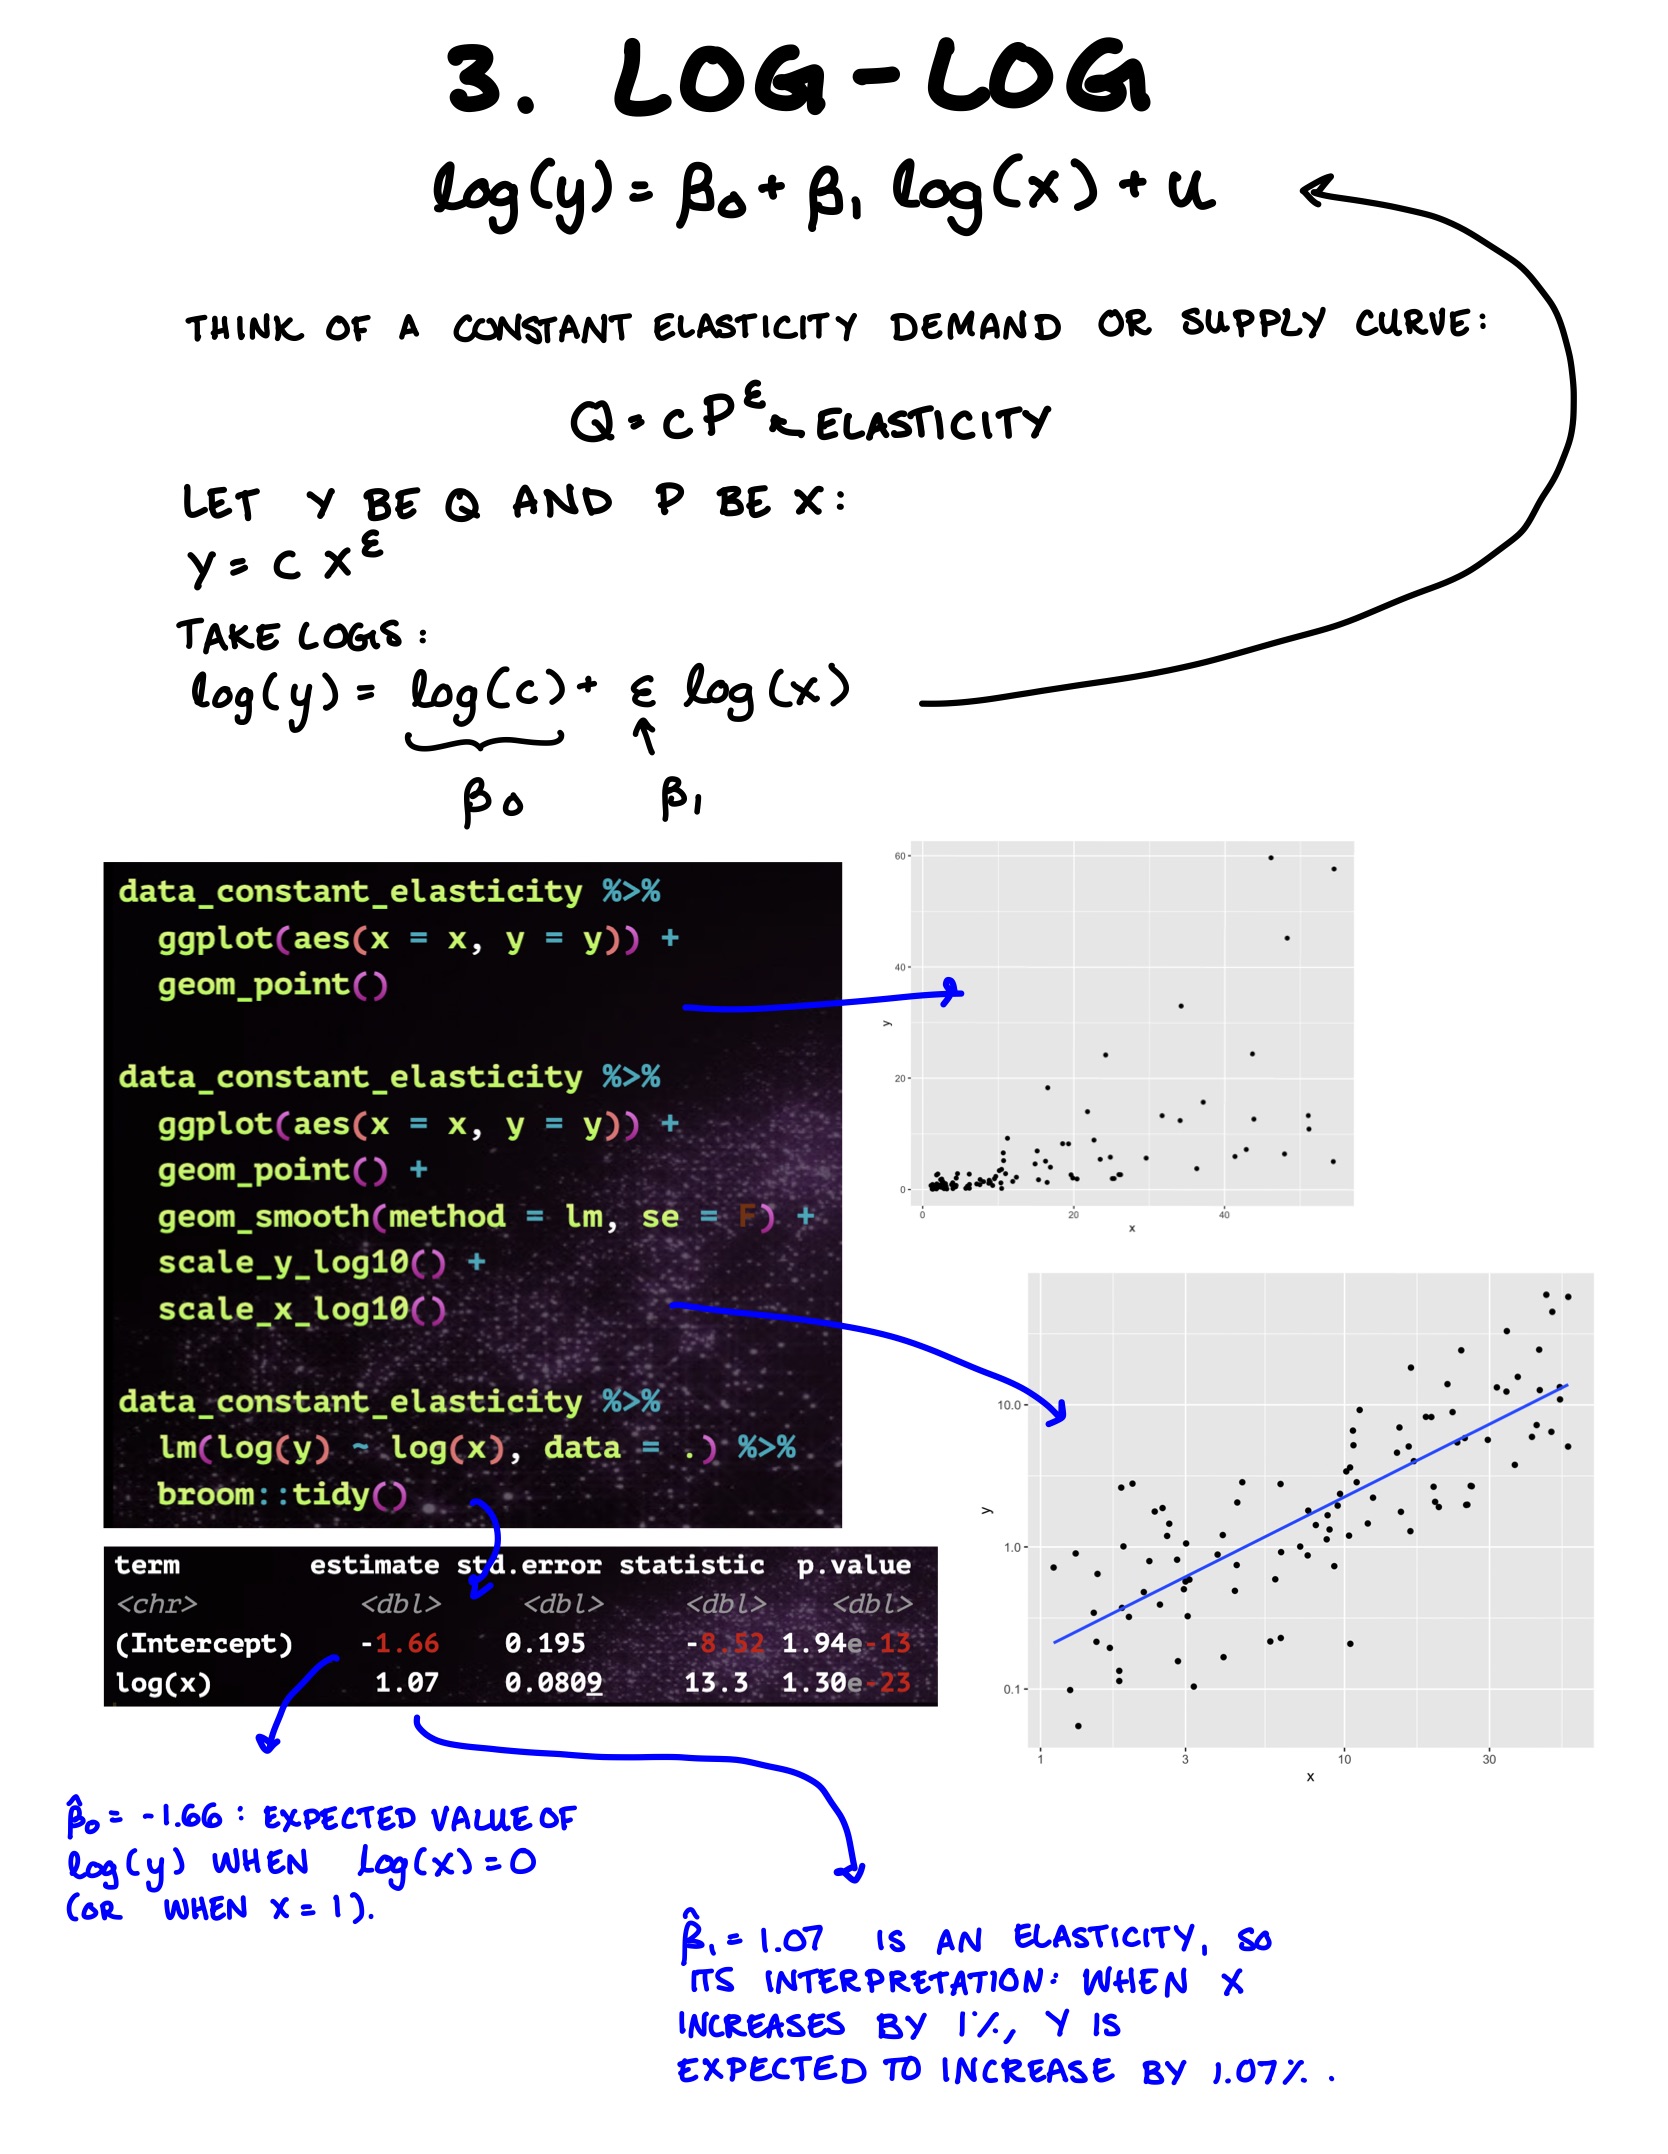 3. LOG-LOG
log(y) = β₀ + β₁ log(x) + u
THINK OF A CONSTANT ELASTICITY DEMAND OR SUPPLY CURVE:
Q = c P^ε ← ELASTICITY
LET Y BE Q AND P BE X:
y = c x^ε
TAKE LOGS:
log(y) = log(c) + ε log(x)
β₀ β₁
data_constant_elasticity %>%
ggplot(aes(x = x, y = y)) +
geom_point()
data_constant_elasticity %>%
ggplot(aes(x = x, y = y)) +
geom_point() +
geom_smooth(method = lm, se = F) +
scale_y_log10() +
scale_x_log10()
data_constant_elasticity %>%
lm(log(y) ~ log(x), data = .) %>%
broom::tidy()
60
40
20
0
y
0 20 40
x
10.0
1.0
0.1
y
1 3 10 30
x
term estimate std.error statistic p.value
<chr> <dbl> <dbl> <dbl> <dbl>
(Intercept) -1.66 0.195 -8.52 1.94e-13
log(x) 1.07 0.0809 13.3 1.30e-23
β̂₀ = -1.66 : EXPECTED VALUE OF
log(y) WHEN log(x) = 0
(OR WHEN X = 1).
β̂₁ = 1.07 IS AN ELASTICITY, SO
ITS INTERPRETATION: WHEN X
INCREASES BY 1%, Y IS
EXPECTED TO INCREASE BY 1.07%.